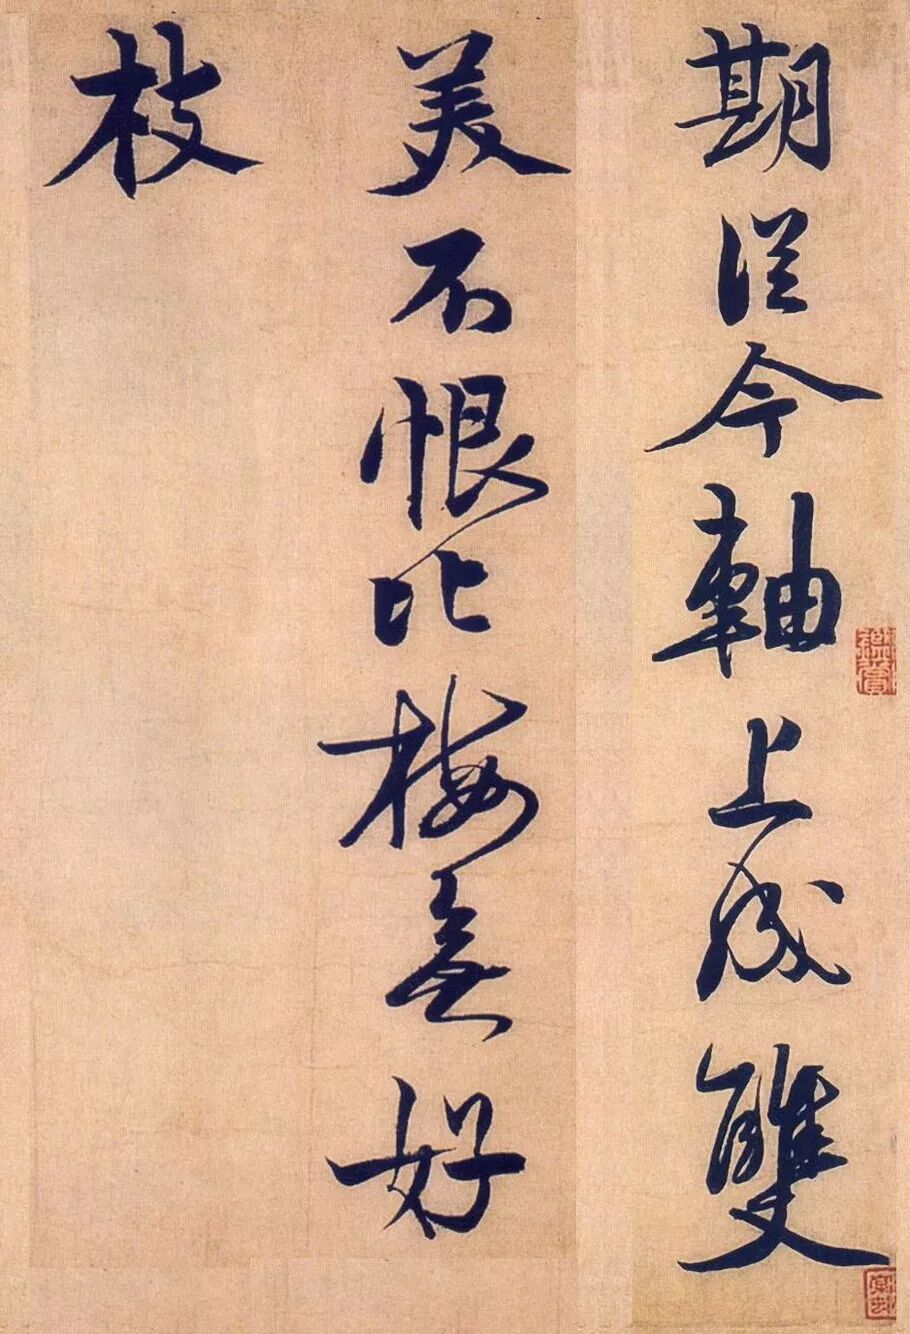 期從今軸上成雙
美不恨比梅無好
枝